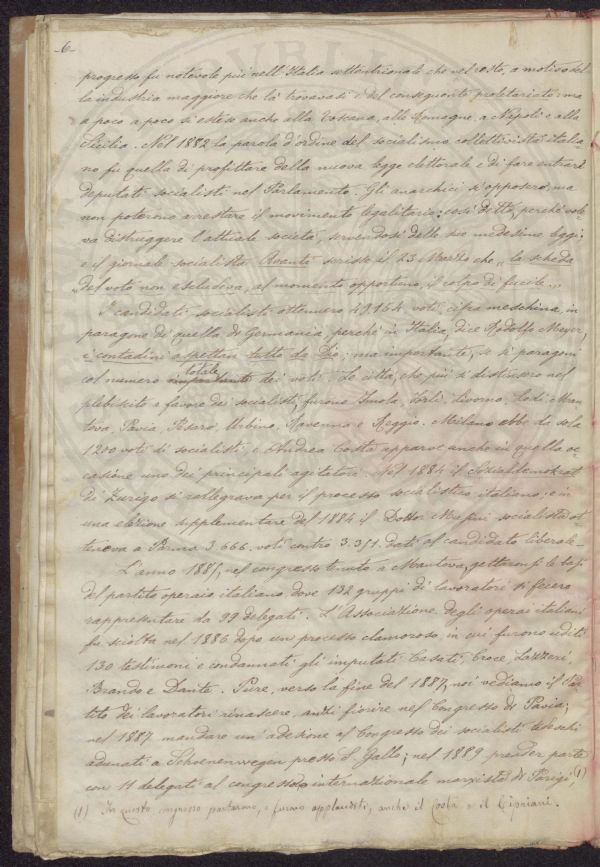 -6-
progresso fu notevole più nell'Italia settentrionale che nel resto, a motivo del
la industria maggiore che là trovavasi e del conseguente proletariato; ma
a poco a poco si estese anche alla Toscana, alle Romagne, a Napoli e alla
Sicilia. Nel 1882 la parola d'ordine del socialismo collettivista italia
no fu quella di profittare della nuova legge elettorale e di fare entrare
deputati socialisti nel Parlamento. Gli anarchici si opposero, ma
non poterono arrestare il movimento legalitario; così detto, perché vole
va distruggere l'attuale società, servendosi delle sue medesime leggi;
e il giornale socialista Avanti scrisse il 23 Marzo che „la scheda
„del voto non escludeva, al momento opportuno, il colpo di fucile„.
I candidati socialisti ottennero 49.154 voti, cifra meschina, in
paragone di quella di Germania, perché in Italia, dice Rodolfo Meyer,
i contadini aspettan tutto da Dio; ma importante, se si paragoni
col numero totale importante dei voti. Le città, che più si distinsero nel
plebiscito a favore dei socialisti, furono Imola, Forlì, Livorno, Lodi, Man
tova, Pavia, Pesaro, Urbino, Ravenna e Reggio. Milano ebbe da sola
1200 voti di socialisti, e Andrea Costa apparve anche in quella oc
casione uno dei principali agitatori. Nel 1884 il Socialdemokrat
di Zurigo si rallegrava per il processo socialistico italiano, e in
una elezione supplementare del 1884 il Dottor Musini socialista ot
teneva a Parma 3.666 voti contro 3.351 dati al candidato liberale.
L'anno 1885, nel congresso tenuto a Mantova, gettaronsi le basi
del partito operaio italiano dove 132 gruppi di lavoratori si fecero
rappresentare da 99 delegati. L'Associazione degli operai italiani
fu sciolta nel 1886 dopo un processo clamoroso, in cui furono uditi
130 testimoni e condannati gli imputati Casati, Croce, Lazzari,
Brando e Dante. Pure, verso la fine del 1887, noi vediamo il Par
tito dei lavoratori rinascere, anzi fiorire nel Congresso di Pavia;
nel 1887 mandare un'adesione al Congresso dei socialisti tedeschi
adunati a Schoenenwegen presso S. Gallo; nel 1889 prender parte
con 11 delegati al congresso internazionale marxista di Parigi (1)
(1) In questo congresso parlarono, e furono applauditi, anche il Costa e il Cipriani.